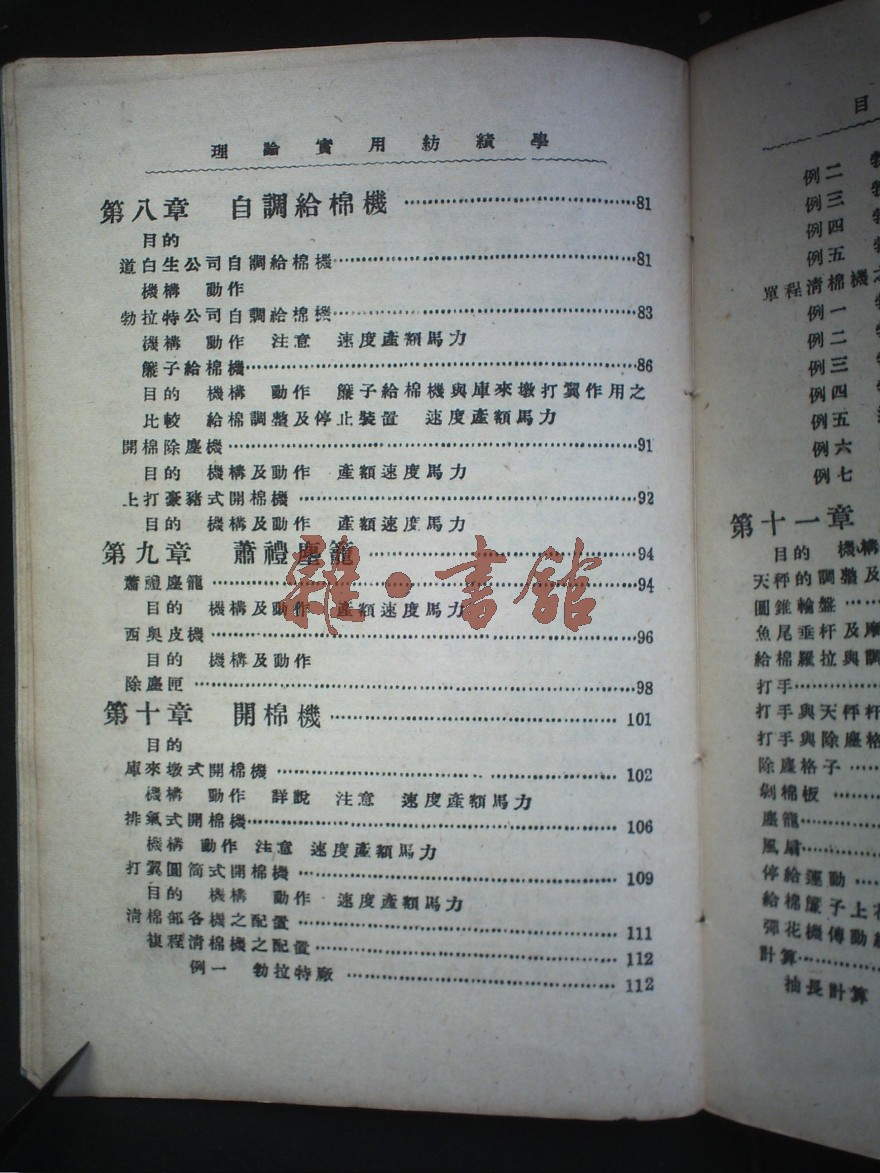 理論實用紡績學
第八章　自調給棉機…………81
目的
道白生公司自調給棉機…………81
機構　動作
勃拉特公司自調給棉機…………83
機構　動作　注意　速度產額馬力
簾子給棉機…………86
目的　機構　動作　簾子給棉機與庫來墩打翼作用之
比較　給棉調整及停止裝置　速度產額馬力
開棉除塵機…………91
目的　機構及動作　產額速度馬力
上打豪豬式開棉機…………92
目的　機構及動作　產額速度馬力
第九章　蕭禮塵籠…………94
蕭禮塵籠…………94
目的　機構及動作　產額速度馬力
西奧皮機…………96
目的　機構及動作
除塵匣…………98
第十章　開棉機…………101
目的
庫來墩式開棉機…………102
機構　動作　詳說　注意　速度產額馬力
排氣式開棉機…………106
機構　動作　注意　速度產額馬力
打翼圓筒式開棉機…………109
目的　機構　動作　速度產額馬力
清棉部各機之配置…………111
複程清棉機之配置…………112
例一　勃拉特廠…………112
雜·書館
目
例二
例三
例四
例五
單程清棉機之
例一
例二
例三
例四
例五
例六
例七
第十一章
目的　機構
天秤的調整及
圓錐輪盤…
魚尾垂杆及摩
給棉羅拉與調
打手…………
打手與天秤杆
打手與除塵格
除塵格子……
剝棉板………
塵籠…………
風扇…………
停給運動……
給棉簾子上花
彈花機傳動
計算…………
抽長計算